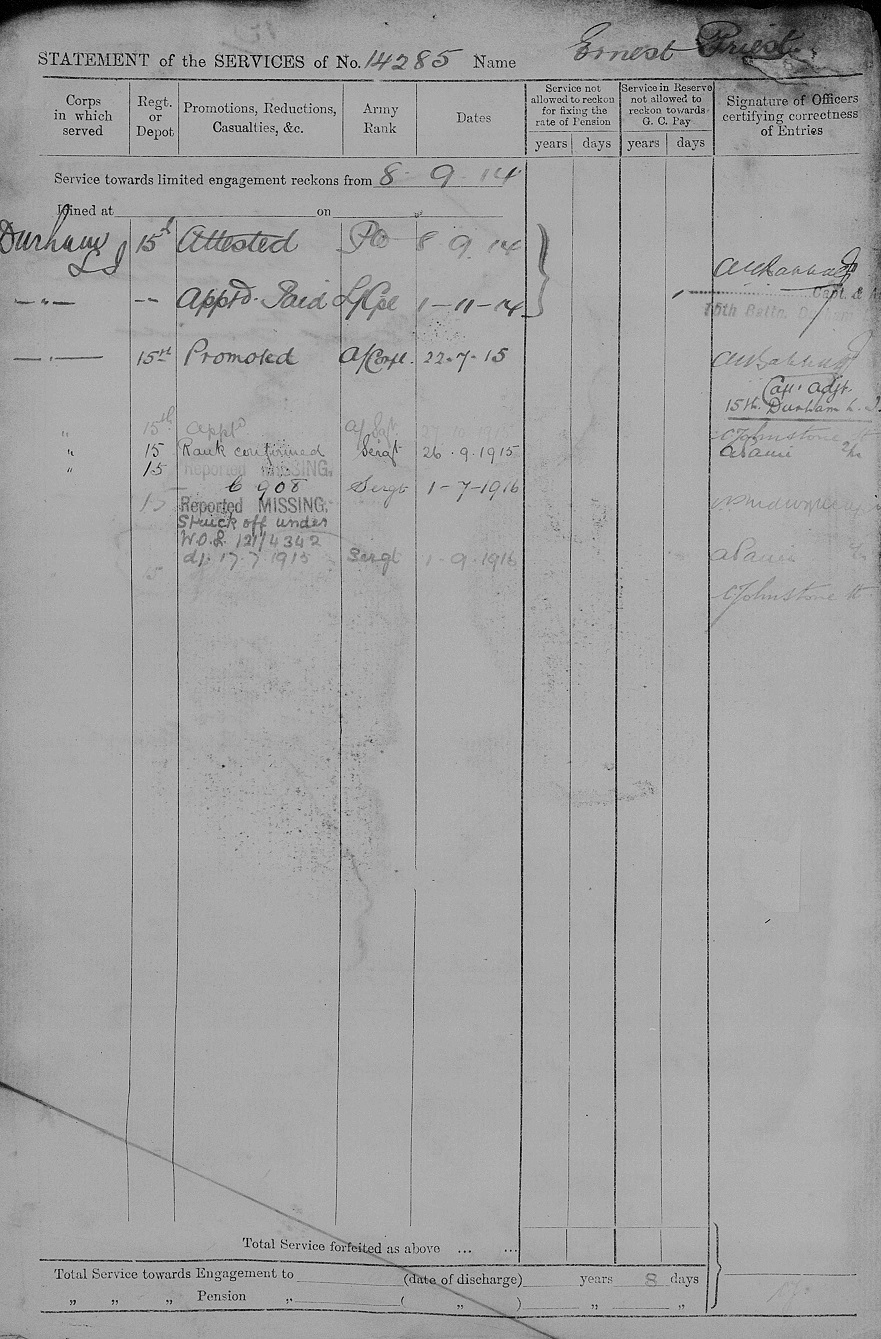 STATEMENT of the SERVICES of No. 14285 Name Ernest Priest
Corps in which served
Regt. or Depot
Promotions, Reductions, Casualties, &c.
Army Rank
Dates
Service not allowed to reckon for fixing the rate of Pension
Service in Reserve not allowed to reckon towards G. C. Pay
Signature of Officers certifying correctness of Entries
years days years days
Service towards limited engagement reckons from 8 9 14
Joined at on
Durham L I 15th Attested Pte 8 9 14
—"— -- Appt'd. Paid L/Cpl 1-11-14
Capt. &
15th Battn.
—"— 15th Promoted a/Corpl. 22-7-15
Capt Adjt.
15th. Durham L. I.
" 15th Appt'd a/Sgt
Johnstone Lt
" 15 Rank confirmed Sergt 26.9.1915
" 15 Reported MISSING.
6 908 Sergt 1-7-1916
15 Reported MISSING.
Struck off under
W.O.L. 121/4342
d/. 17.7.1915 Sergt 1.9.1916
15
Johnstone Lt
Total Service forfeited as above ... ...
Total Service towards Engagement to (date of discharge) years 8 days
" " " Pension " ( " ) " "